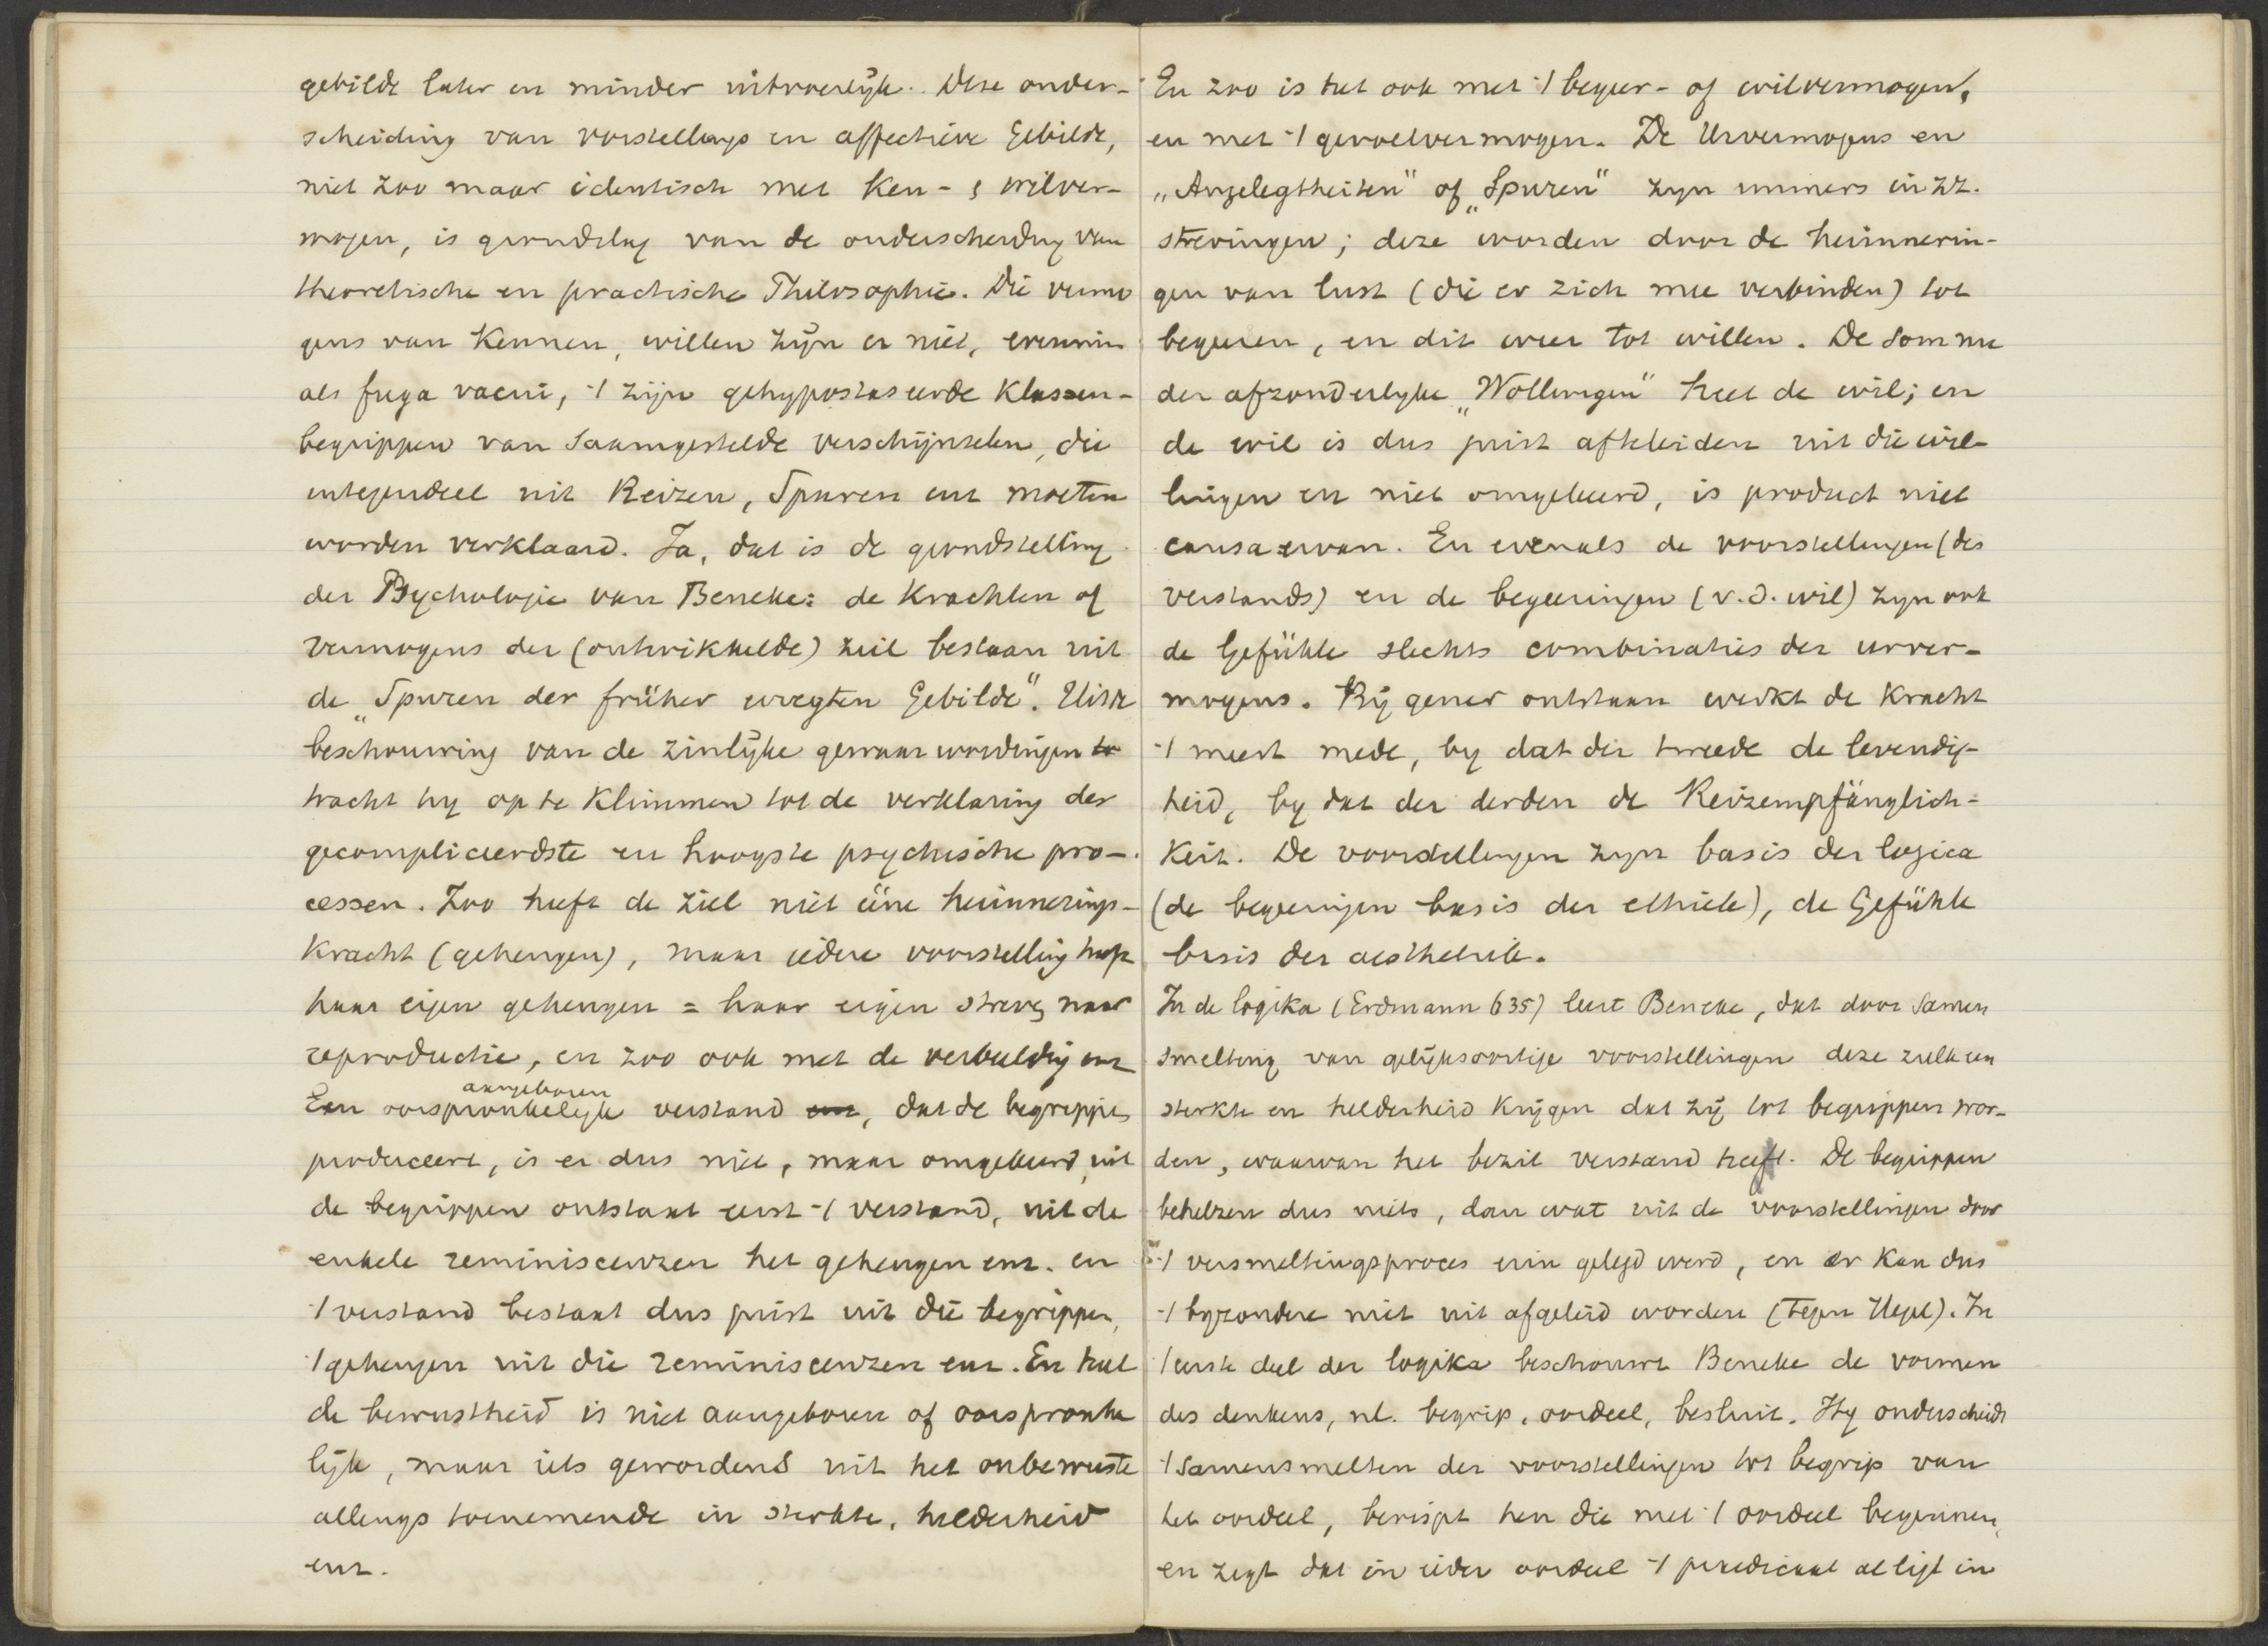 gebilde later en minder uitvoerlijk. Deze onder-
scheiding van vorstellungs en affectieve Gebilde,
niet zoo maar identisch met Ken- & wilver-
mogen, is grondslag van de onderscheiding van
theoretische en practische Philosophie. Die vermo
gens van Kennen, willen zijn er niet, evenmin
als fuga vacui, 't zijn gehypostaseerde Klassen-
begrippen van saamgestelde verschijnselen, die
integendeel uit Reizen, Spuren enz moeten
worden verklaard. Ja, dat is de grondstelling
der Psychologie van Beneke: de Krachten of
vermogens der (ontwikkelde) ziel bestaan uit
de „Spuren der früher erregten Gebilde". Uit de
beschouwing van de zinlijke gewaarwordingen
tracht hy op te Klimmen tot de verklaring der
gecompliceerdste en hoogste psychische pro-
cessen. Zoo heeft de ziel niet ééne herinnerings-
Kracht (geheugen), maar iedere voorstelling heeft
haar eigen geheugen = haar eigen streven naar
reproductie, en zoo ook met de verbeelding enz
aangeboren
Een oorspronkelijk verstand enz, dat de begrippen
produceert, is er dus niet, maar omgekeerd, uit
de begrippen ontstaat eerst 't verstand, uit de
enkele reminiscenzen het geheugen enz. en
't verstand bestaat dus juist uit die begrippen,
't geheugen uit die reminiscenzen enz. En heel
de bewustheid is niet aangeboren of oorspronke
lijk, maar iets gewordens uit het onbewuste
allengs toenemende in sterkte, helderheid
enz.
En zoo is het ook met 't begeer- of wilvermogen,
en met 't gevoelvermogen. De Urvermogens en
„Angelegtheiten" of „Spuren" zyn immers in zz.
strevingen; deze worden door de herinnerin-
gen van lust (die er zich mee verbinden) tot
begeeren, en dit weer tot willen. De somme
der afzonderlyke „Wollungen" heet de wil; en
de wil is dus juist afteleiden uit die wil-
lingen en niet omgekeerd, is product niet
causa ervan. En evenals de voorstellingen (des
verstands) en de begeeringen (v. d. wil) zyn ook
de Gefühle slechts combinaties der urver-
mogens. Bij gener ontstaan werkt de Kracht
't meest mede, by dat der tweede de levendig-
heid, by dat der derden de Reizempfänglich-
Keit. De voorstellingen zyn basis der logica
(de begeeringen basis der ethiek), de Gefühle
basis der aesthetiek.
In de logika (Erdmann 635) leert Beneke, dat door samen
smelting van gelijksoortige voorstellingen deze zulk een
sterkte en helderheid krijgen dat zij tot begrippen wor-
den, waarvan het bezit verstand heeft. De begrippen
behelzen dus niets, dan wat uit de voorstellingen door
't versmeltingsproces erin gelegd werd, en er kan dus
't byzondere niet uit afgeleid worden (tegen Hegel). In
't eerste deel der logika beschouwt Beneke de vormen
des denkens, nl. begrip, oordeel, besluit. Hy onderscheidt
't samensmelten der voorstellingen tot begrip van
het oordeel, berispt hen die met 't oordeel beginnen,
en zegt dat in ieder oordeel 't praedicaat al ligt in